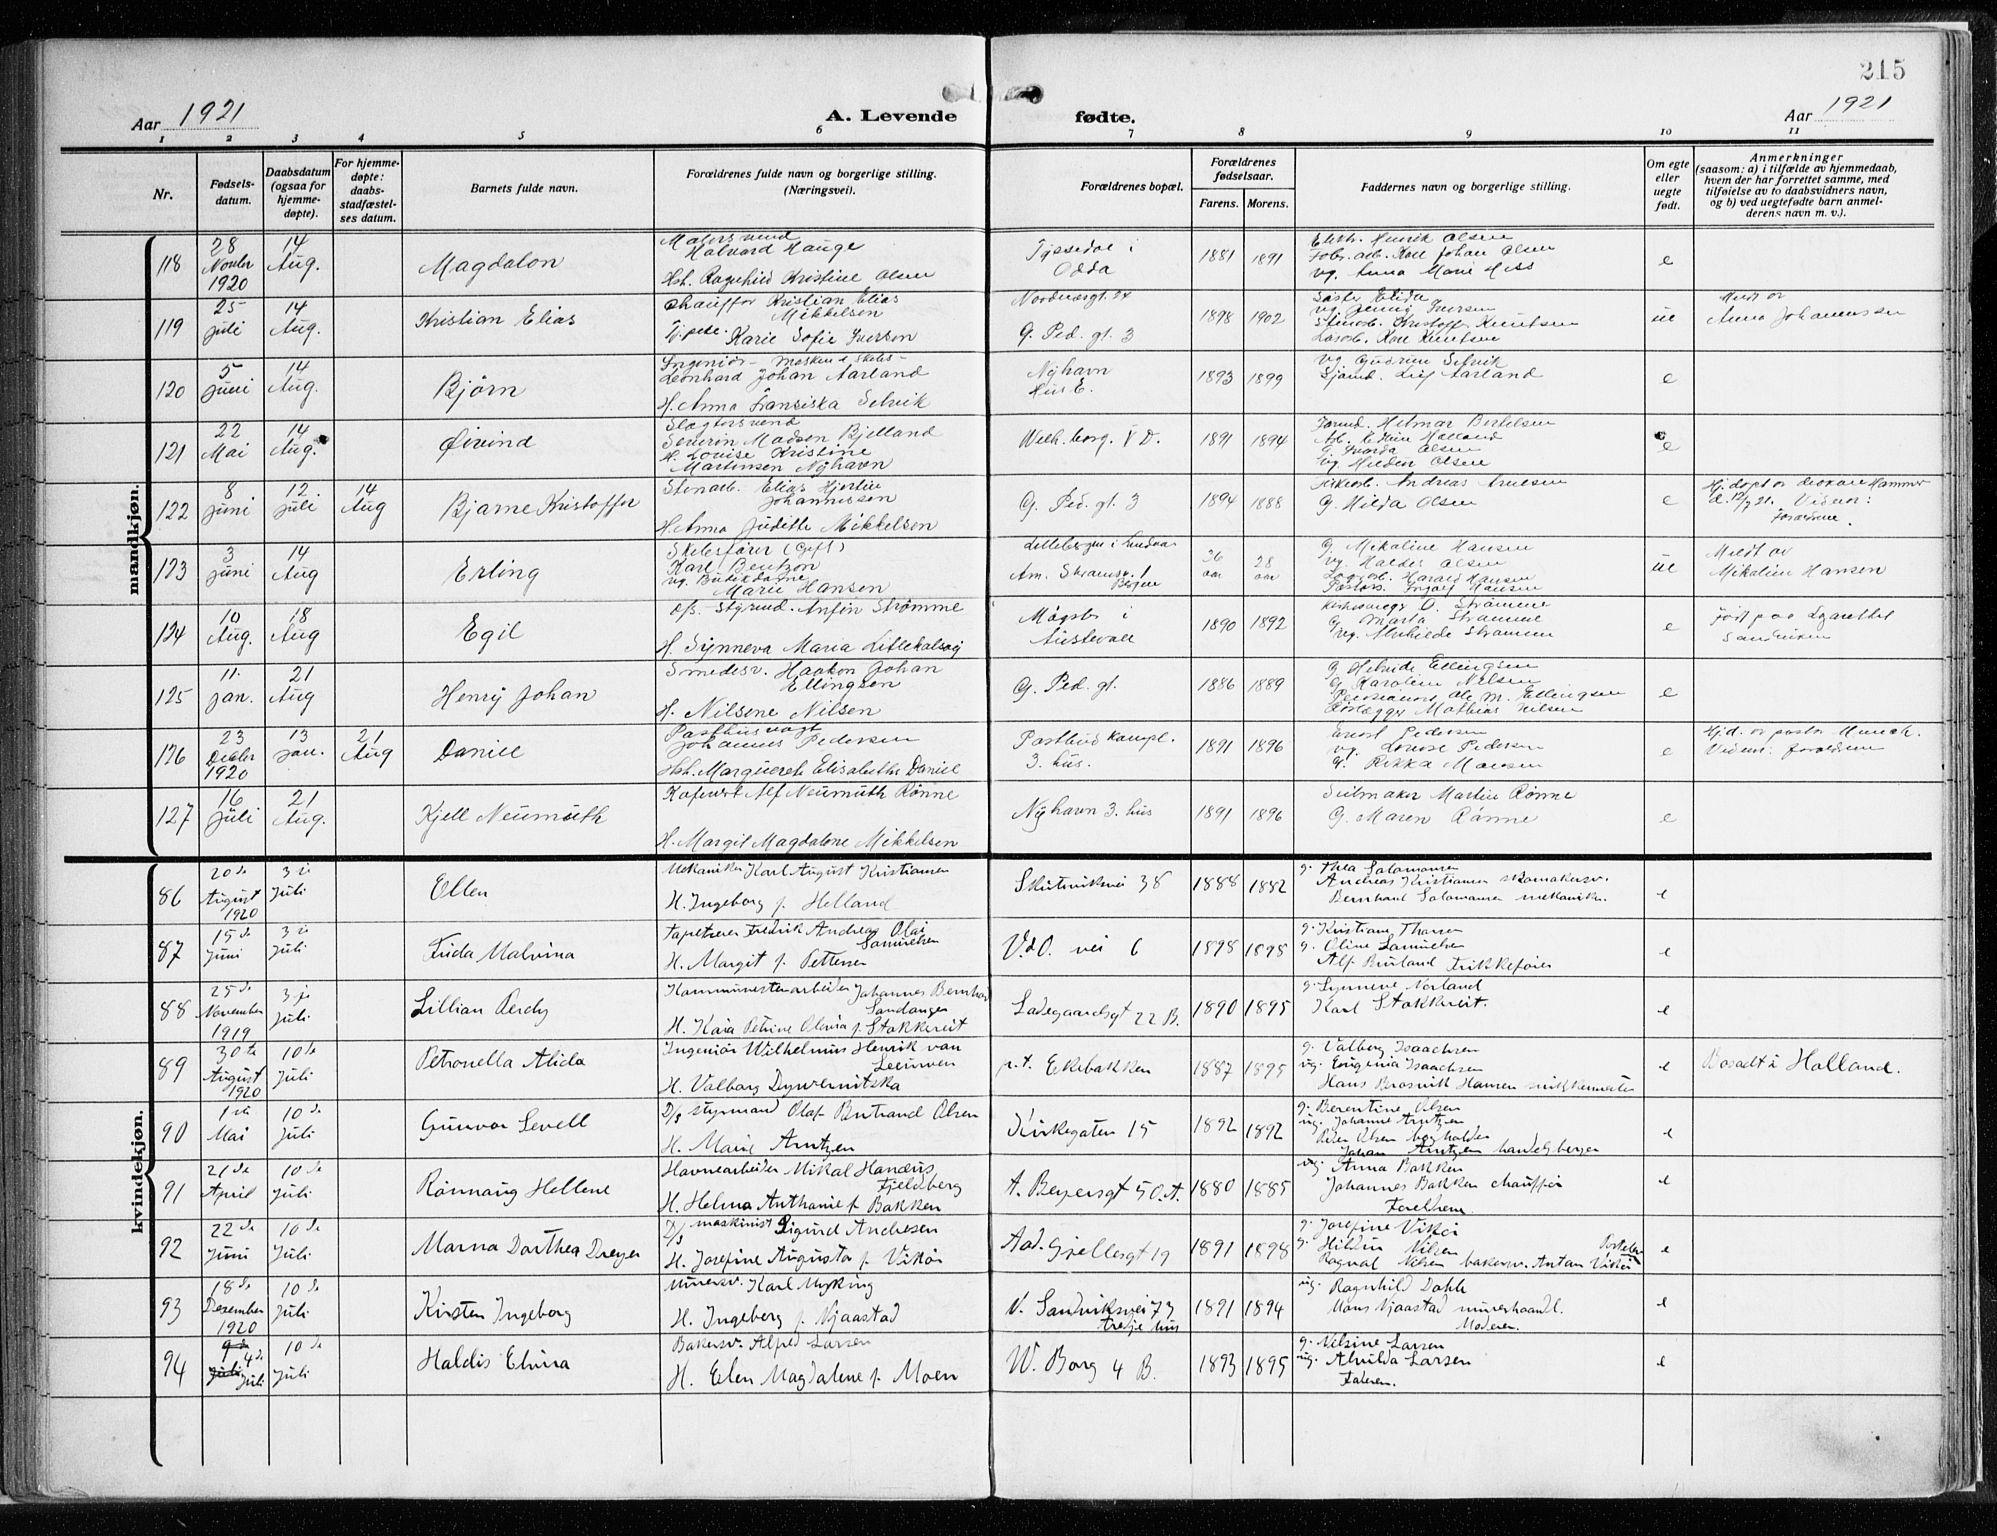 215
Aar 1921
A. Levende fødte.
Aar 1921
1 2 3 4 5 6 7 8 9 10 11
Nr.
Fødsels-
datum.
Daabsdatum
(ogsaa for
hjemme-
døpte).
For hjemme-
døpte:
daabs-
stadfæstel-
ses datum.
Barnets fulde navn.
Forældrenes fulde navn og borgerlige stilling.
(Næringsvei).
Forældrenes bopæl.
Forældrenes
fødselsaar.
Farens. Morens.
Faddernes navn og borgerlige stilling.
Om egte
eller
uegte
født.
Anmerkninger
(saasom: a) i tilfælde av hjemmedaab,
hvem der har forrettet samme, med
tilføielse av to daabsvidners navn,
og b) ved uegtefødte barn anmel-
derens navn m. v.).
mandkjøn.
118
28
Novbr
1920
14
Aug.
Magdalon
Malersvend
Halvard Hauge
Hst. Ragnhild Kristine Olsen
Tyssedal i
Odda
1881 1891
Elektr. Henrik Olsen
Fabr. arb. Karl Johan Olsen
vg. Anna Marie
e
119
25
Juli
14
Aug.
Kristian Elias
Chauffør Kristian Elias
Mikkelsen
Karie Sofie Iversen
Nordnæsgt. 24
G. Ped. gt. 3
1898 1902
Søster Elida
vg. Jenny Iversen
Stenarb. Kristoffer Knutsen
Karl Knutsen
ue
Meldt av
Anna Johannessen
120
5
Juni
14
Aug.
Bjørn
Ingeniør-
Leonhard Johan Aarland
H. Anna Fransiska Selvik
Nyhavn
Hus E.
1893 1899
vg. Gudrun Selvik
Sjømd. Leif Aarland
e
121
22
Mai
14
Aug.
Øivind
Slagtersvend
Severin Madsen Bjelland
H. Louise Kristine
Martinsen Nyhavn
Wilh. borg. V D.
1891 1894
Hilmar Bertelsen
Arb. Edvin Halland
Olsen
vg. Olsen
e
122
8
Juni
12
Juli
14
Aug
Bjarne Kristoffer
Stenarb. Elias Hjertin
Johannessen
H. Anna Judithe Mikkelsen
G. Ped. gt. 3
1894 1888
Andreas Knutsen
G. Hilda Olsen
e
Hjdøpt av Hammer
d. 12/7 21. Vidner:
Forældrene.
123
3
Juni
14
Aug
Erling
(Gift)
Karl Bentzon
vg. Butikdame
Marie Hansen
Am. Strømsv. 1
Bergen
26
aar
28
aar
G. Mikaline Hansen
vg. Haldis Olsen
Harald Hansen
Ingolf Hansen
ue
Meldt av
Mikaline Hansen
124
10
Aug.
18
Aug
Egil
D/s. Styrmd. Anfin Strømme
H. Synneva Maria Litlekalsøy
Møgster i
Austevoll
1890 1892
O. Strømme
G Marta Strømme
vg. Mathilde Strømme
e
Født paa Lazarettet
Sandviken
125
11.
Jan.
21
Aug
Henry Johan
Smedesv. Haakon Johan
Ellingsen
H. Nilsene Nilsen
G. Ped. gt.
1886 1889
G Helvide Ellingsen
G Karoline Nilsen
Pensionist Ole M. Ellingsen
Mathias Nilsen
e
126
23
Decbr
1920
13
Jan.
21
Aug
Daniel
Posthusvagt
Johannes Pedersen
Hst. Margureth Elisabeth Daniel
Postbud
3. hus.
1891 1896
Ernst Pedersen
vg. Lovise Pedersen
G. Rikka
e
Hjd. av pastor Munch.
Vidner: forældrene
127
16
Juli
21
Aug.
Kjell Neumuth
Kafevert Alf Neumuth Rønne
H. Margit Magdalone Mikkelsen
Nyhavn 3. hus
1891 1896
Seilmaker Martin Rønne
G. Maren Rønne
e
kvindekjøn.
86
20de
August
1920
3 die
Juli
Ellen
Mekaniker Karl August Kristiansen
H. Ingeborg f. Helland
Skutevikvei 38
1888 1882
g. Thea Salomonsen
Andreas Kristiansen skomakersv.
Bernhard Salomonsen mekaniker.
e
87
15 de
Juni
3 die
Juli
Frida Malvina
Tapetserer Fredrik Andreas Olai
Samuelsen
H. Margit f. Pettersen
V.d.O. vei 6
1898 1895
g. Kristiane Thorsen
g. Oline Samuelsen
Alf
e
88
25 de
November
1919
3 je
Juli
Lillian
Kommunestenarbeider Johannes Bernhard
Sandanger
H. Kaia Petrine Olivia f. Stokkereit
Ladegaardsgt 22 B.
1890 1895
g. Synneve Norland
Karl Stokkereit.
e
89
30 te
August
1920
10 de
Juli
Petronella Alida
Ingeniør Wilhelmus Henrik van
Leeuwen
H. Valborg
p.t. Ekebakken
1887 1895
g. Valborg Isaachsen
ug. Eugenia Isaachsen
Hans Brosvik Hansen
e
Bosadt i Holland.
90
1 ste
Mai
10 de
Juli
Gunvor Sevell
D/s styrmand Olaf Bertrand Olsen
H. Marie Arntzen
Kirkegaten 15
1892 1892
g. Berentine Olsen
ug. Johanne Arntzen
Peder Olsen bogholder
Johan Arntzen handelsborger
e
91
21 de
April
10 de
Juli
Rønnaug Hellene
Havnearbeider Mikal Hanæus
Fjeldberg
H. Helma Anthanie f. Bakken
A. Beyersgt 50.A.
1880 1885
ug. Anna Bakken
Johannes Bakken chauffør
Foreldrene.
e
92
22 de
Juni
10 de
Juli
Marna Dorthea Dreyer
D/s maskinist Sigurd Andresen
H. Josefine Augusta f. Vikør
Aad. Gjellesgt 19
1891 1898
g. Josefine Vikør
g. Hildur Nilsen
Ragnal Nilsen bakersv. Antan Vikør
e
93
18 de
Desember
1920
10 de
Juli
Kirsten Ingeborg
Murersv. Karl Myking
H. Ingeborg f. Njaastad
N. Sandviksvei 73
tredje hus
1891 1894
ug. Ragnhild Dahle
Mons Njaastad murerhaandl.
Moderen.
e
94
9 de 4 de
Juli Juli
10 de
Juli
Haldis Elvira
Bakersv. Alfred Larsen
H. Elen Magdalene f. Moen
W. Borg 4 B.
1893 1895
g. Nelsine Larsen
ug. Alvilda Larsen
Faderen.
e